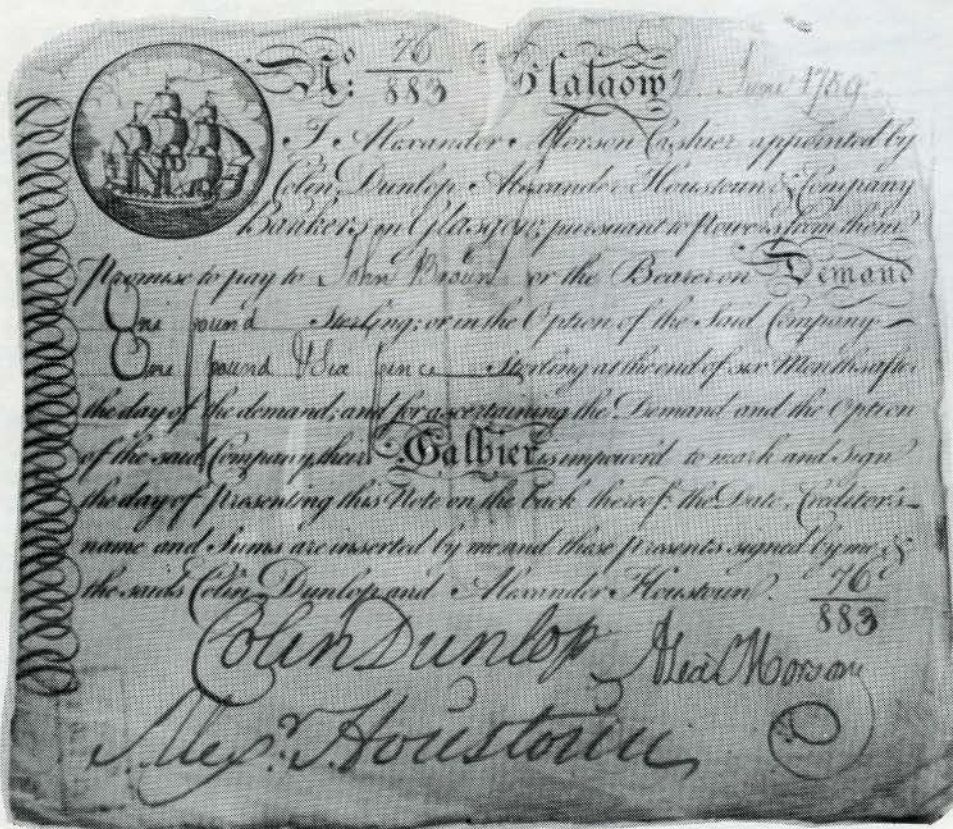 No. 76/883 Glasgow June 1759
I Alexander Morson Cashier appointed by
Colin Dunlop Alexander Houstown & Company
Bankers in Glasgow, pursuant to Powers from them
Promise to pay to John Brown or the Bearer on Demand
One pound Sterling; or in the Option of the Said Company
One pound & Six pence Sterling at the end of six Months after
the day of the demand; and for ascertaining the Demand and the Option
of the said Company, their Cashier is impower'd to mark and Sign
the day of Presenting this Note on the back thereof: the Date, Creditor's
name and Sums are inserted by me and these presents signed by me &
the saids Colin Dunlop and Alexander Houstown. 76/883
Colin Dunlop Alexr Morson
Alexr. Houstown